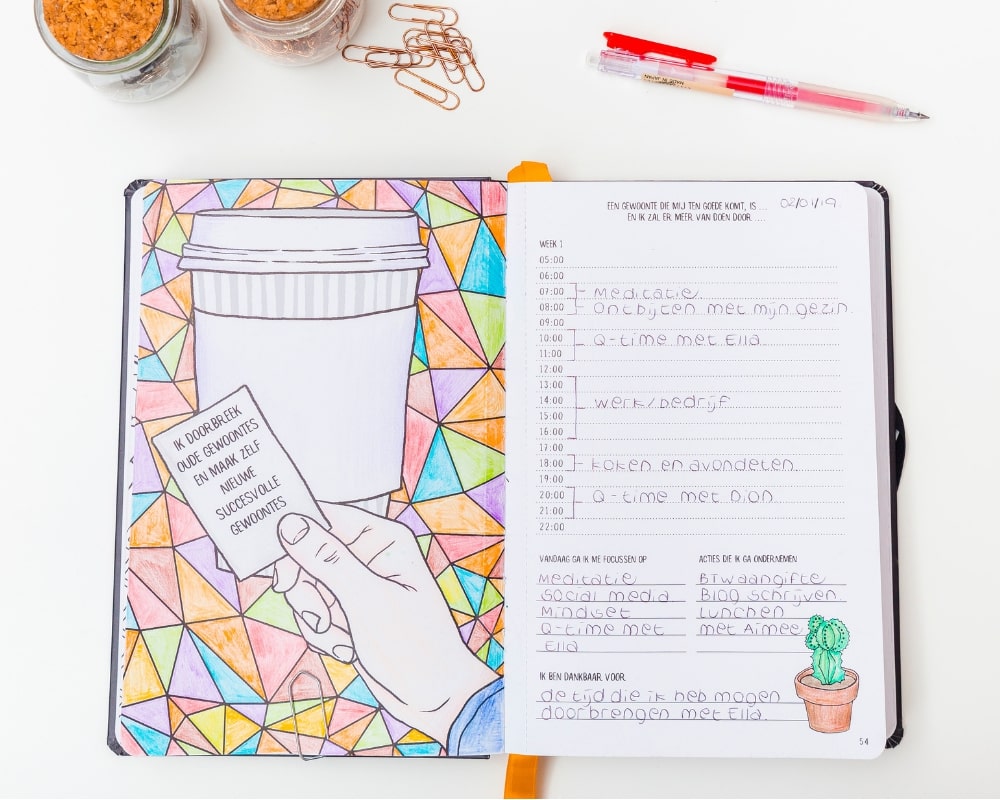 MADE IN JAPAN
IK DOORBREEK
OUDE GEWOONTES
EN MAAK ZELF
NIEUWE
SUCCESVOLLE
GEWOONTES
EEN GEWOONTE DIE MIJ TEN GOEDE KOMT, IS ... 02/01/19.
EN IK ZAL ER MEER VAN DOEN DOOR ....
WEEK 1
05:00
06:00
07:00 - Meditatie
08:00 - Ontbijten met mijn gezin.
09:00
10:00 Q-time met Ella
11:00
12:00
13:00
14:00 werk/bedrijf
15:00
16:00
17:00
18:00 - koken en avondeten
19:00
20:00 Q-time met Dion
21:00
22:00
VANDAAG GA IK ME FOCUSSEN OP
Meditatie
Social media
Mindset
Q-time met
Ella
ACTIES DIE IK GA ONDERNEMEN
BTW aangifte
Blog schrijven.
Lunchen
met Aimee
IK BEN DANKBAAR VOOR
de tijd die ik heb mogen
doorbrengen met Ella.
54